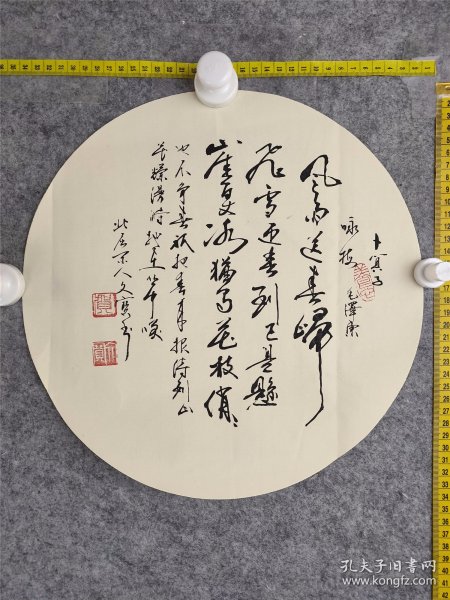 卜算子
咏梅 毛澤東
风雨送春歸
飞雪迎春到已是懸
崖百丈冰猶有花枝俏〻
也不争春祇把春来报待到山
花爛漫时她在丛中笑
孔夫子旧书网
www.kongfz.com